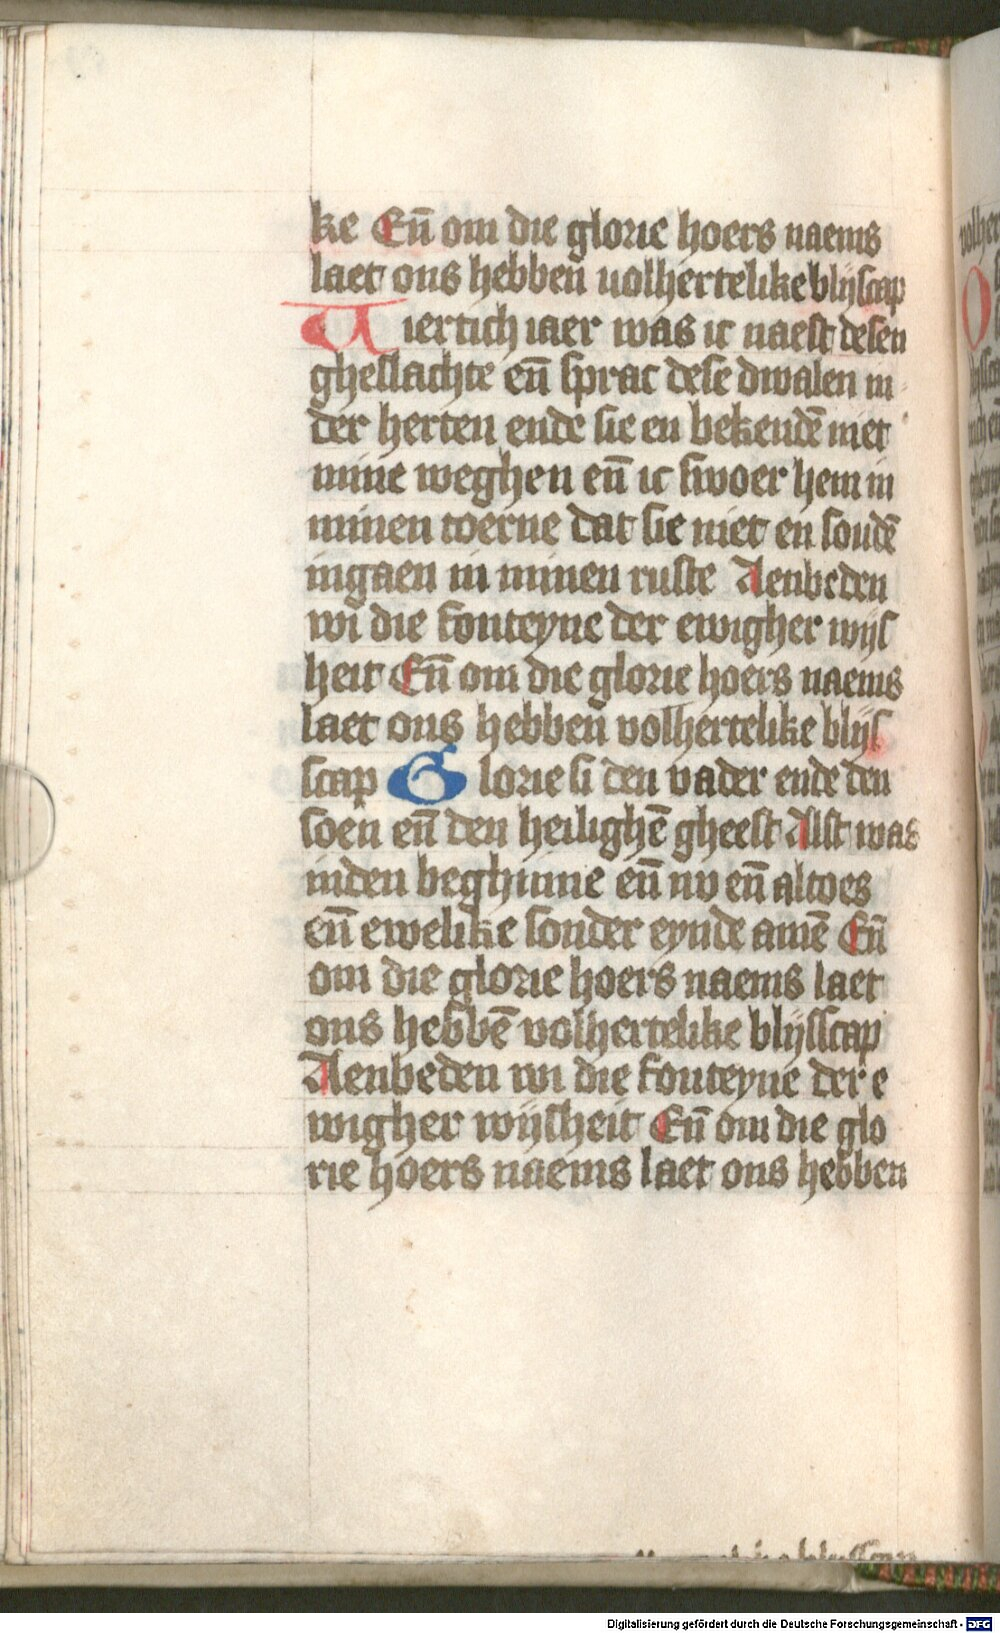 ke Eñ om die glorie hoers naems
laet ons hebben volhertelike blijscap
Viertich iaer was ic naest desen
gheslachte eñ sprac dese dwalen in
der herten ende sie en bekendē niet
mine weghen eñ ic swoer hem in
minen toerne dat sie niet en soudē
ingaen in minen ruste Aenbeden
wi die fonteyne der ewigher wijs
heit Eñ om die glorie hoers naems
laet ons hebben volhertelike blijs
scap Glorie si den vader ende den
soen eñ den heilighē gheest Alst was
inden beghinne eñ nv eñ altoes
eñ ewelike sonder eynde amē Eñ
om die glorie hoers naems laet
ons hebbē volhertelike blijsscap
Aenbeden wi die fonteyne der e
wigher wijsheit Eñ om die glo
rie hoers naems laet ons hebben
Digitalisierung gefördert durch die Deutsche Forschungsgemeinschaft - DFG